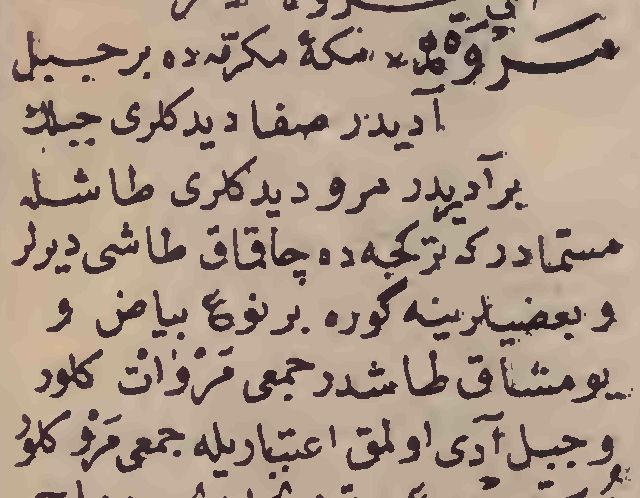 مَرْوَه مكۀ مكرّمه ده بر جبيل
آديدر صفا ديدكلرى جبيلك
بر آديدر مرو ديدكلرى طاشله
مستمادر كه تركجه ده چاقاق طاشى ديرلر
و بعضيلرينه كوره بر نوع بياض و
يومشاق طاشدر جمعى مَرَوَات كلور
و جبل آدى اولمق اعتباريله جمعى مَرْو كلور